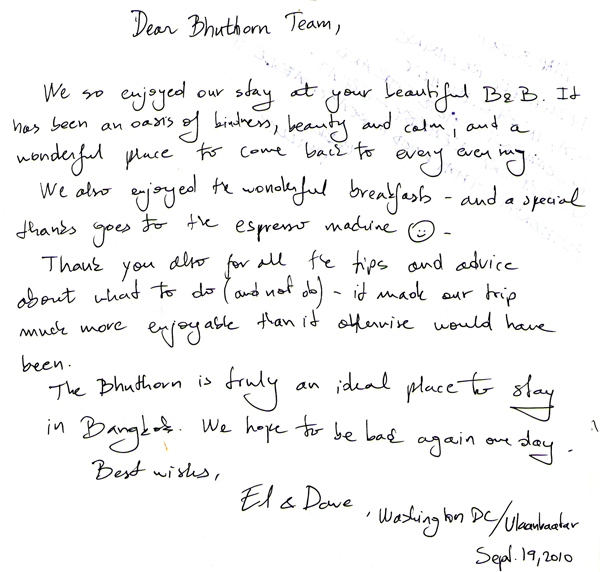 Dear Bhuthorn Team,
We so enjoyed our stay at your beautiful B&B. It
has been an oasis of kindness, beauty and calm; and a
wonderful place to come back to every evening.
We also enjoyed the wonderful breakfasts - and a special
thanks goes to the espresso machine ☺ -
Thank you also for all the tips and advice
about what to do (and not do) - it made our trip
much more enjoyable than it otherwise would have
been.
The Bhuthorn is truly an ideal place to stay
in Bangkok. We hope to be back again one day.
Best wishes,
El & Dave, Washington DC/Ulaanbaatar
Sept. 19, 2010